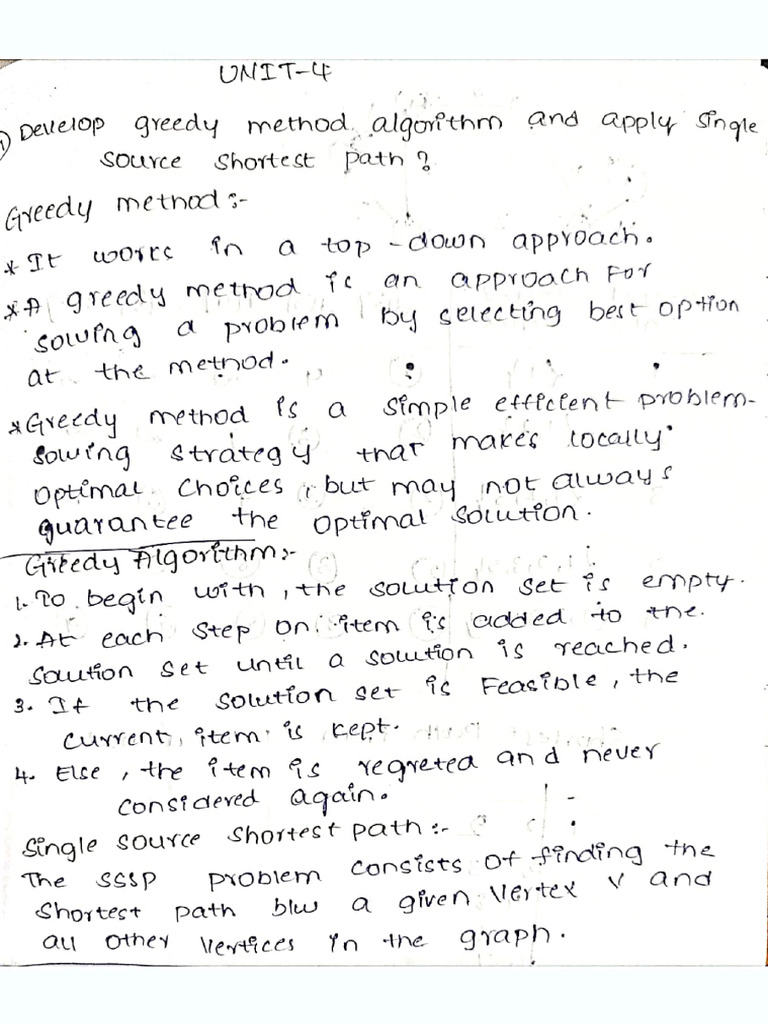 UNIT-4
1) Develop greedy method algorithm and apply single
source shortest path?
Greedy method:-
* It works in a top-down approach.
* A greedy method is an approach for
solving a problem by selecting best option
at the method.
* Greedy method is a simple efficient problem-
solving strategy that makes locally
optimal choices, but may not always
guarantee the optimal solution.
Greedy Algorithm:-
1. To begin with, the solution set is empty.
2. At each step on item is added to the.
saution set until a solution is reached.
3. If the solution set is Feasible, the
current item is kept.
4. Else, the item is regreted and never
considered again.
Single source shortest path:-
The SSSP problem consists of finding the
shortest path b/w a given vertex V and
all other vertices in the graph.